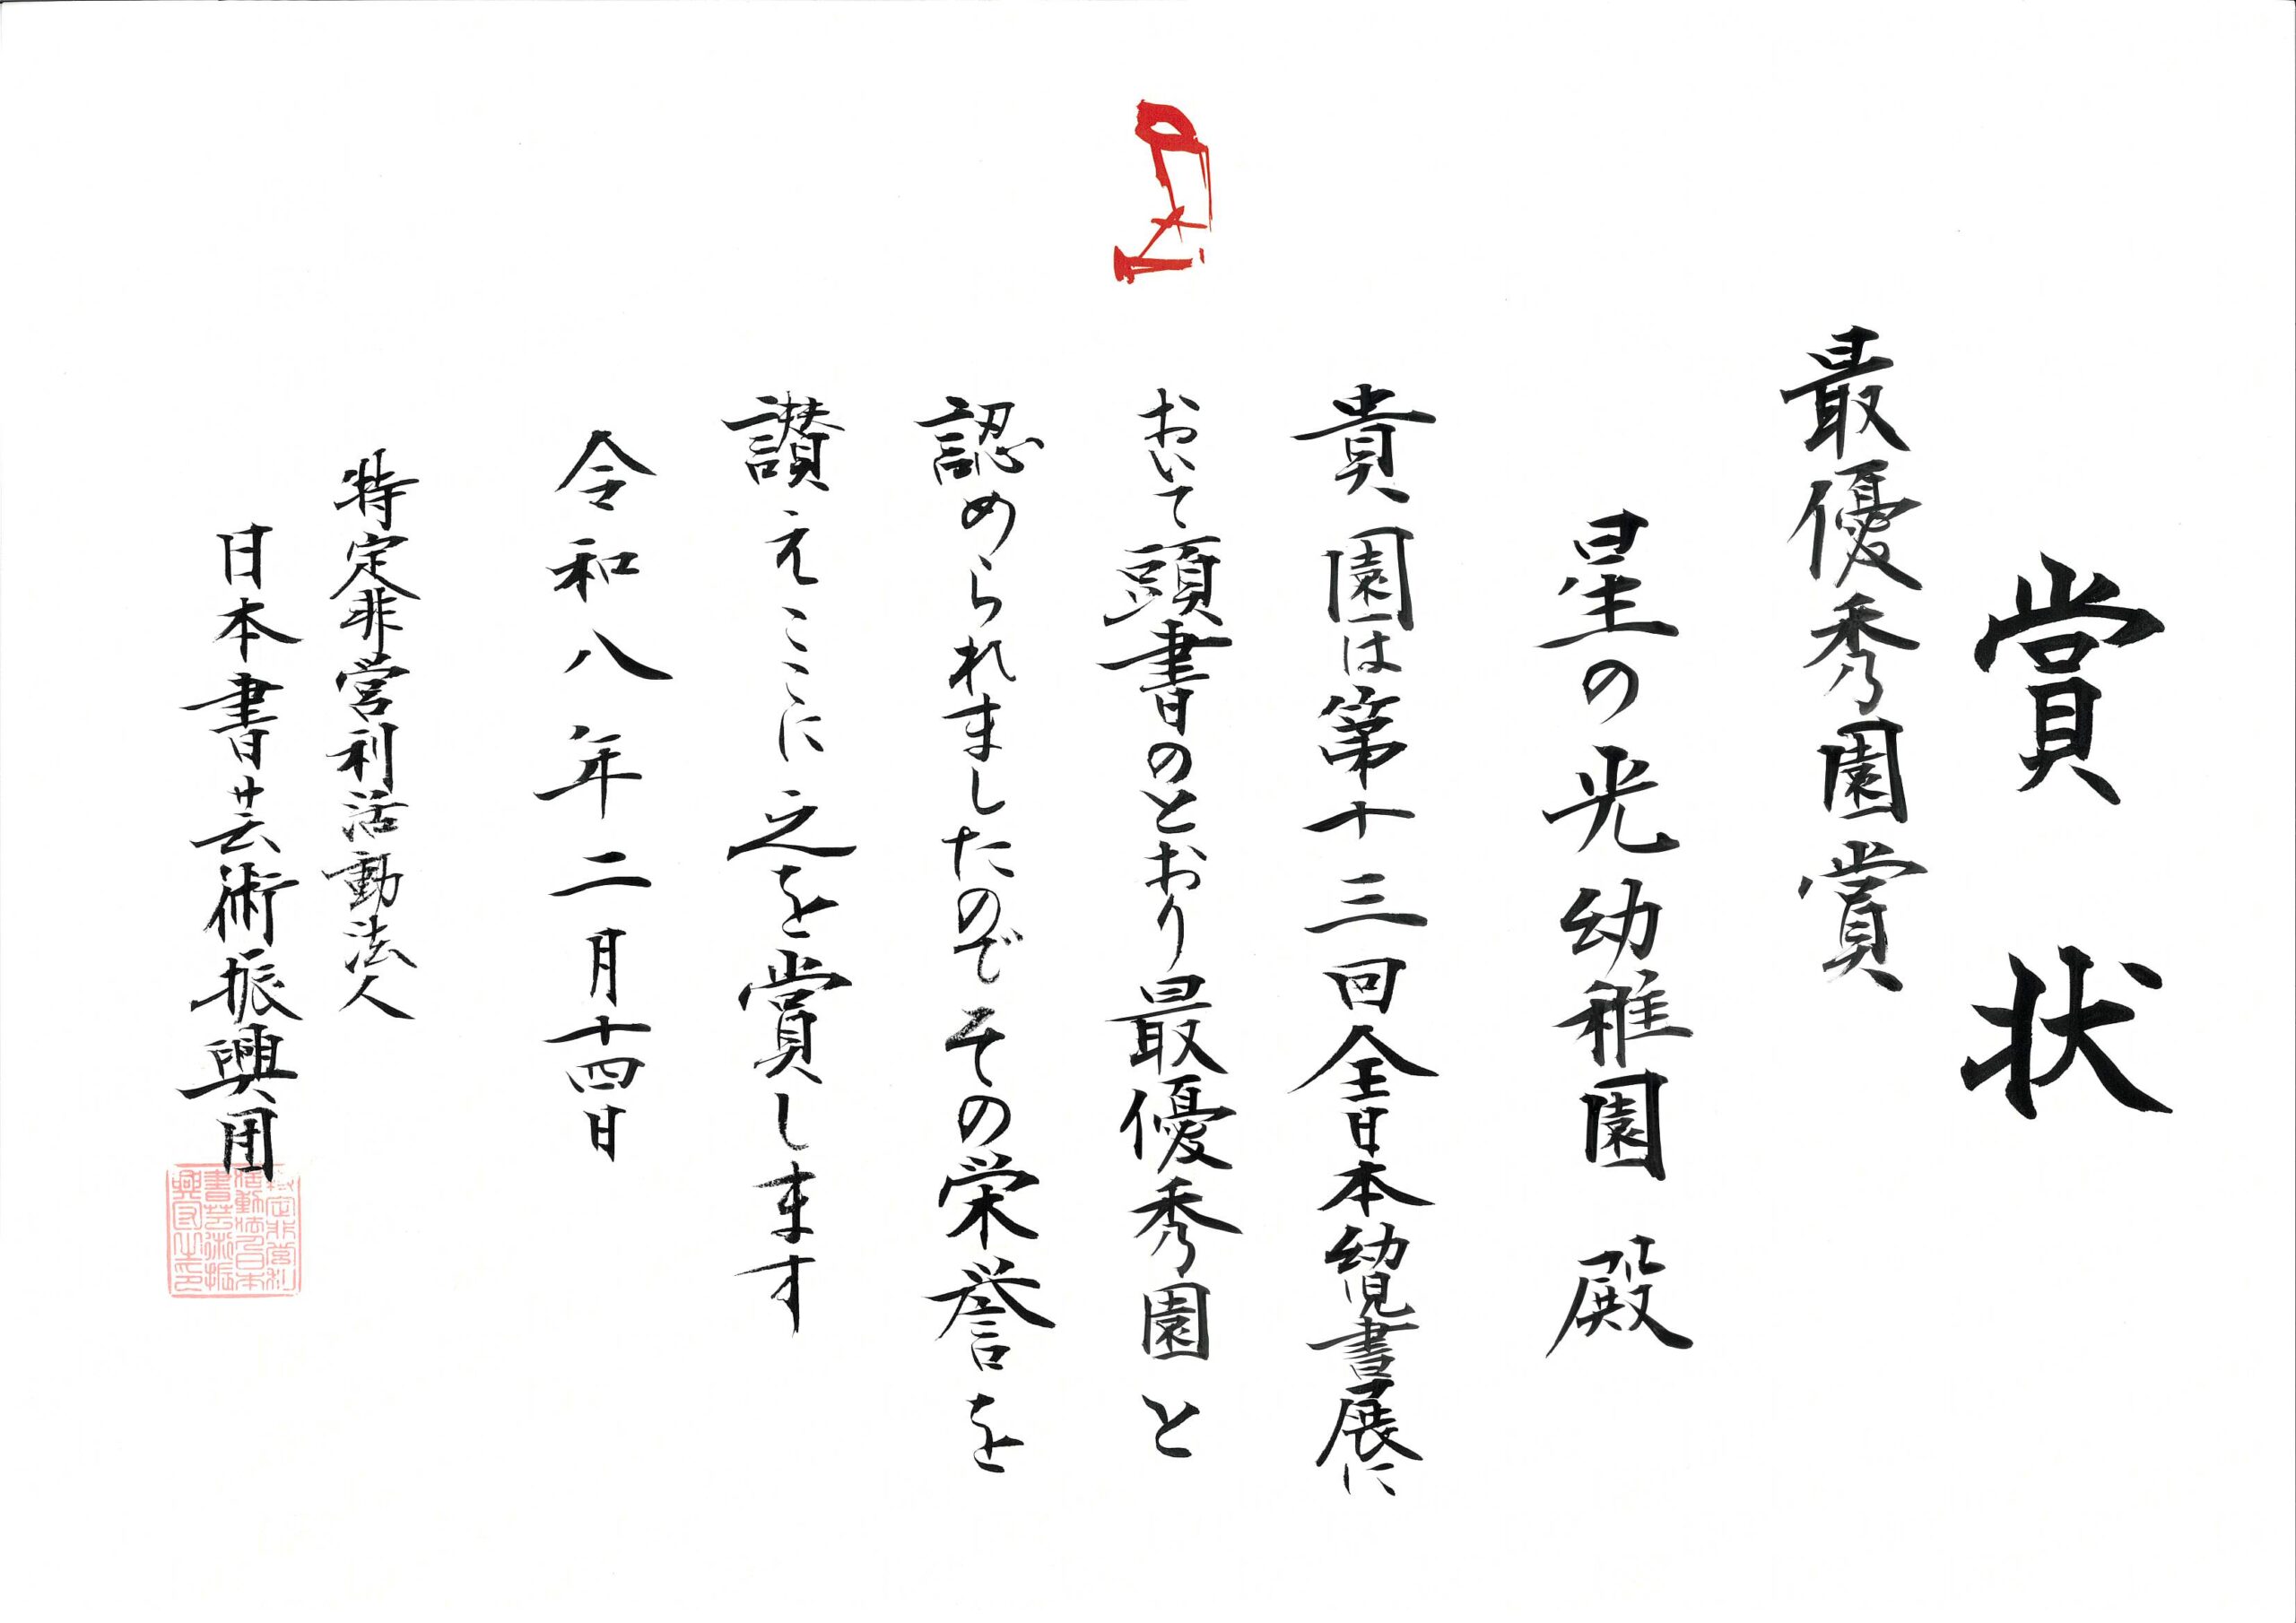 賞状
最優秀園賞
星の光幼稚園 殿
貴園は第十三回全日本幼児書展に
おいて頭書のとおり最優秀園と
認められましたのでその栄誉を
讃えここに之を賞します
令和八年二月十四日
特定非営利活動法人
日本書芸術振興団